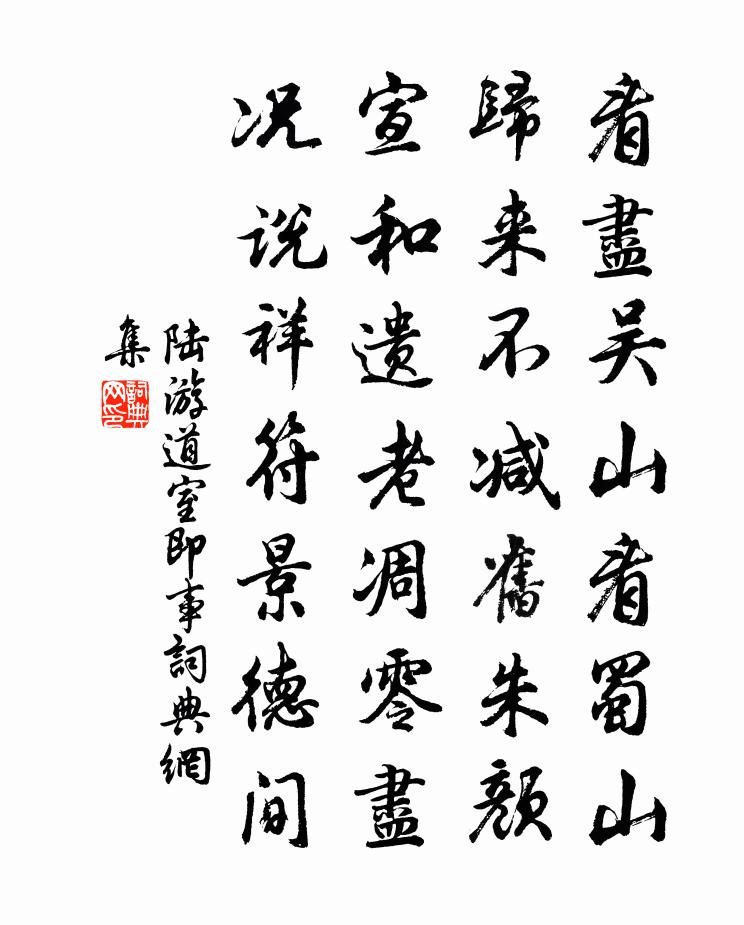 看盡吴山看蜀山
歸来不减舊朱顔
宣和遺老凋零盡
况説祥符景德间
陆游道室即事詞典網
集
詞典网印